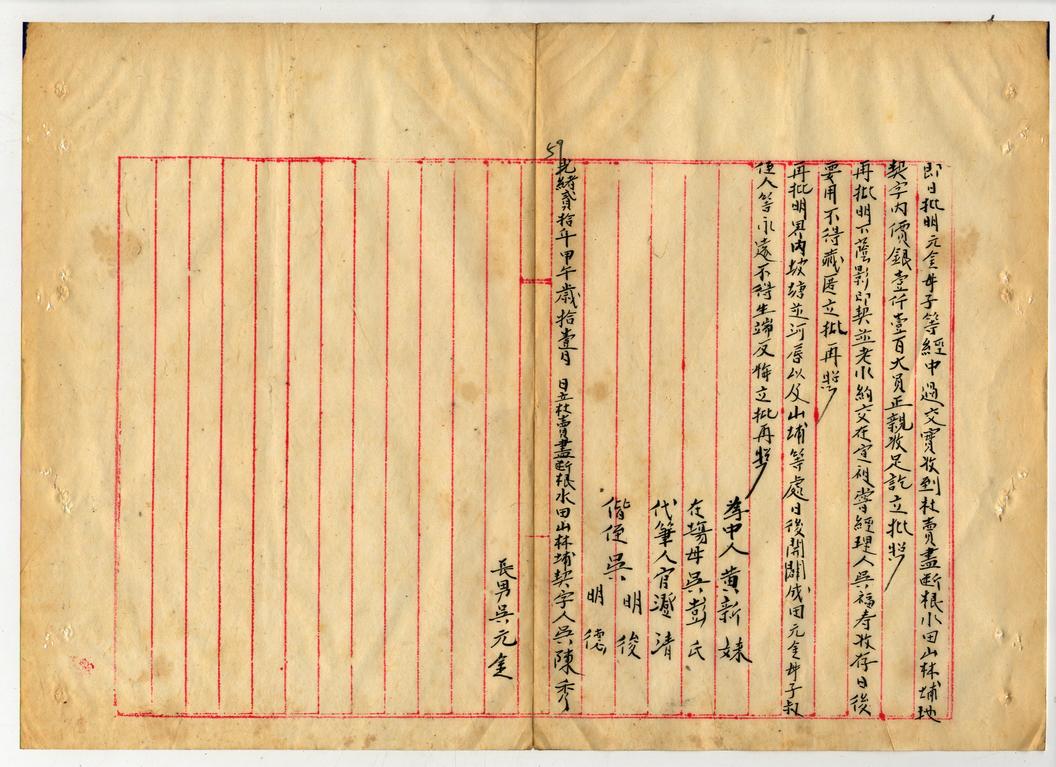 即日批明元金母子等經中過交實收到杜賣盡断根水田山林埔地
契字內價銀壹仟壹百大員正親收足訖立批照
再批明下蔭影印契並老水約交在定祖嘗經理人吳福寿收存日後
要用不得藏匿立批再照
再批明界內坡塘並河唇以及山埔等處日後開闢成田元金母子叔
侄人等永遠不得生端反悔立批再照
為中人黄新妹
在塲母吳彭氏
代筆人官瀅清
偕侄吳明後
明德
59
光緒貳拾年甲午歲拾壹月 日立杜賣盡断根水田山林埔契字人吳陳秀
長男吳元金